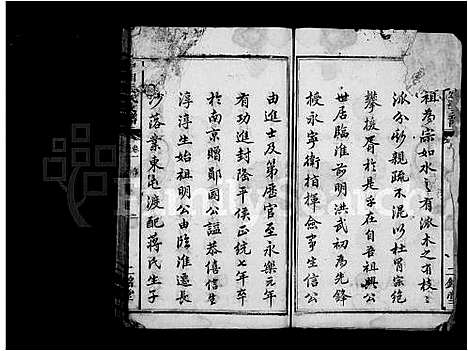 祖為宗如水之有派木之有枝
派分彩親疏不混以杜冒宗絶
攀援胥於是乎在自吾祖興公
世居臨淮前明洪武初為先鋒
授永寧衛指揮僉事生信公
由進士及第歷官至永樂元年
有功進封隆平侯正統七年卒
於南京贈鄖國公諡恭僖信生
淳淳生始祖明公由臨淮遷長
沙落業東屯渡配蔣氏生子
FamilySearch